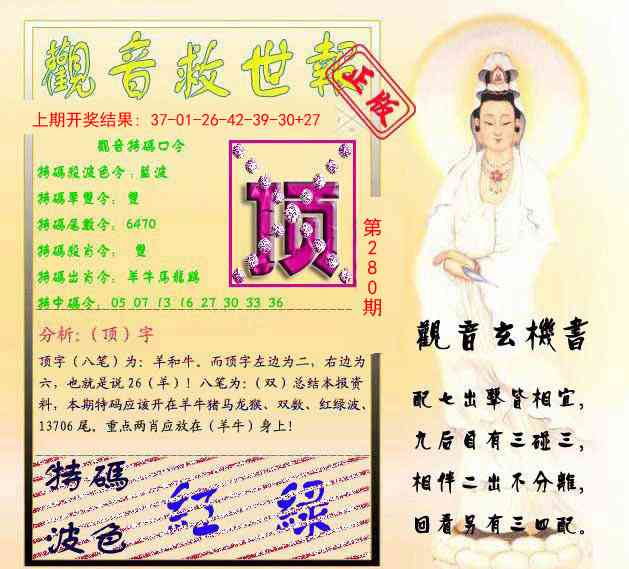 觀音救世報
正版
上期开奖结果：37-01-26-42-39-30+27
觀音特碼口令
特碼段波色令：藍波
特碼單雙令： 雙
特碼尾數令： 6470
特碼段肖令： 雙
特碼出肖令： 羊牛馬龍鷄
特中碼令： 05 07 13 16 27 30 33 36
顶
第280期
分析：（顶）字
顶字（八笔）为：羊和牛。而顶字左边为二，右边为
六，也就是说 26（羊）！八笔为：（双）总结本报资
料，本期特码应该开在羊牛猪马龙猴、双数、红绿波、
13706 尾。重点两肖应放在（羊牛）身上！
特碼
波色
紅 綠
觀音玄機書
配七出擊皆相宜，
九后自有三碰三，
相伴二出不分離，
回看另有三四配。